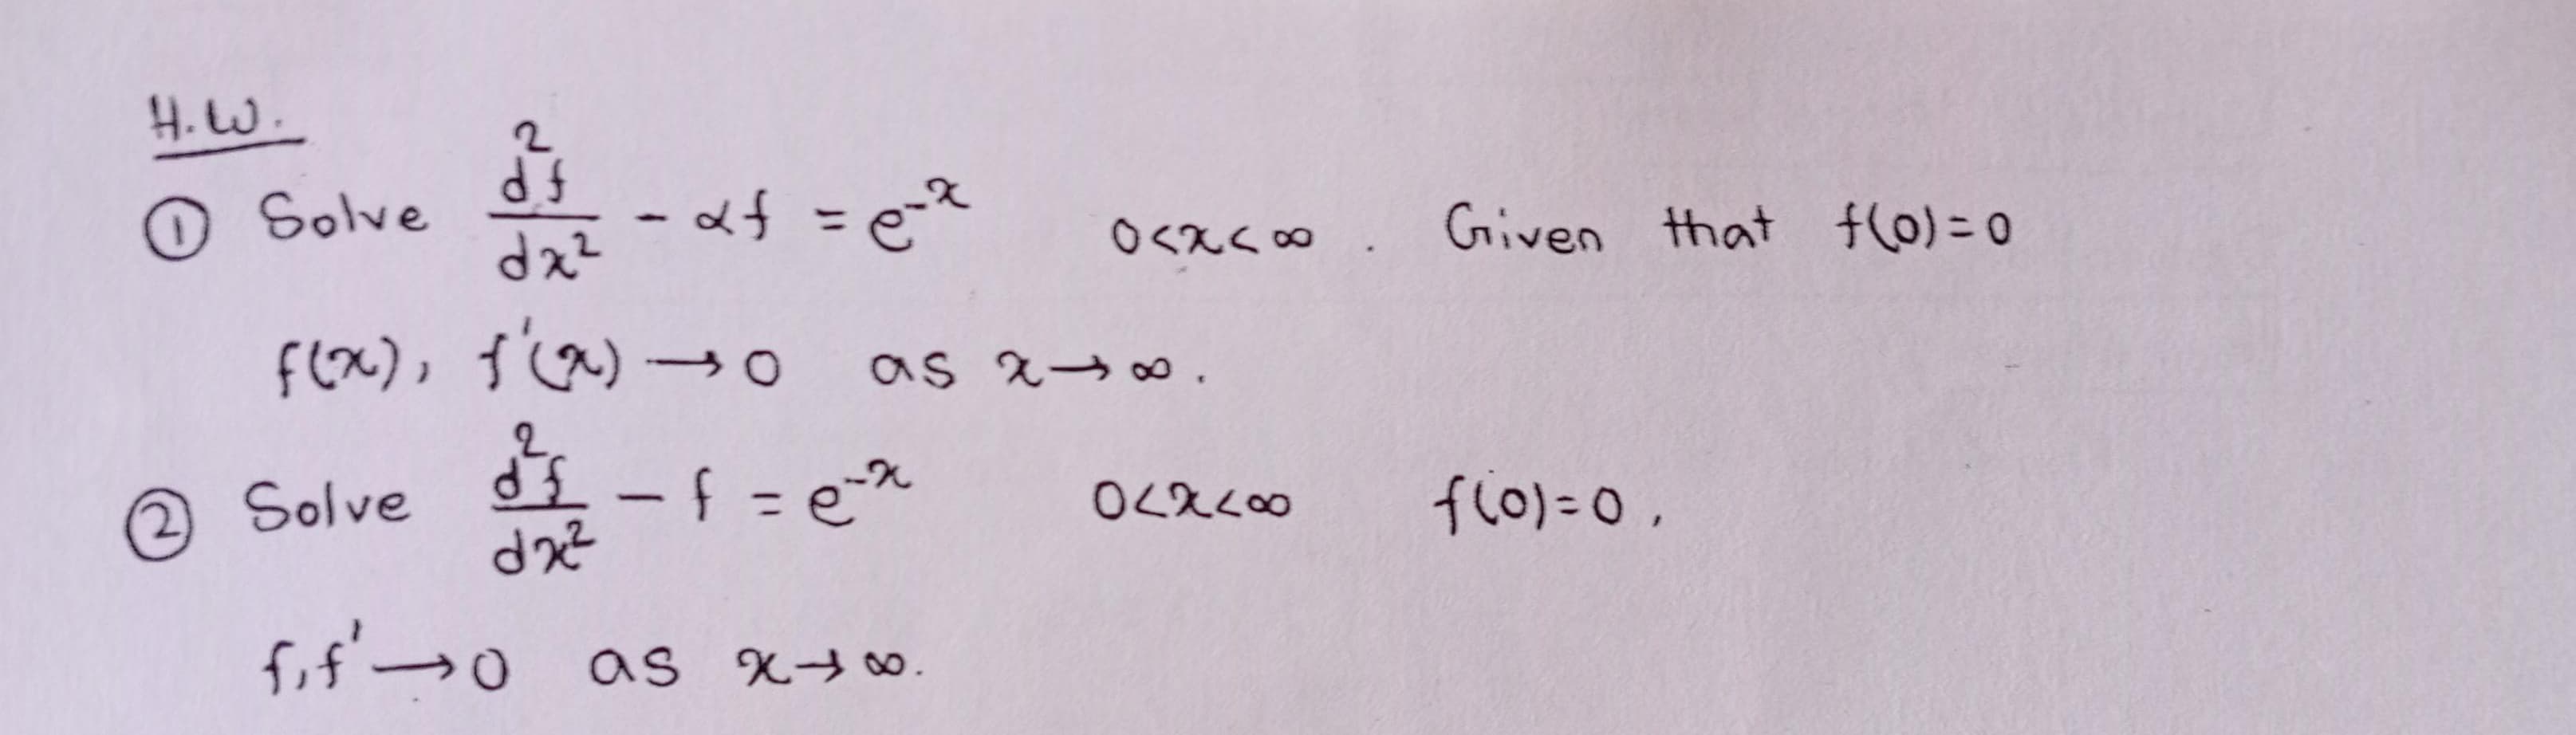 H.W.
① Solve d²f/dx² - αf = e^{-x} 0<x<∞ . Given that f(0)=0
f(x), f'(x) → 0 as x→∞.
② Solve d²f/dx² - f = e^{-x} 0<x<∞ f(0)=0,
f,f' → 0 as x→∞.